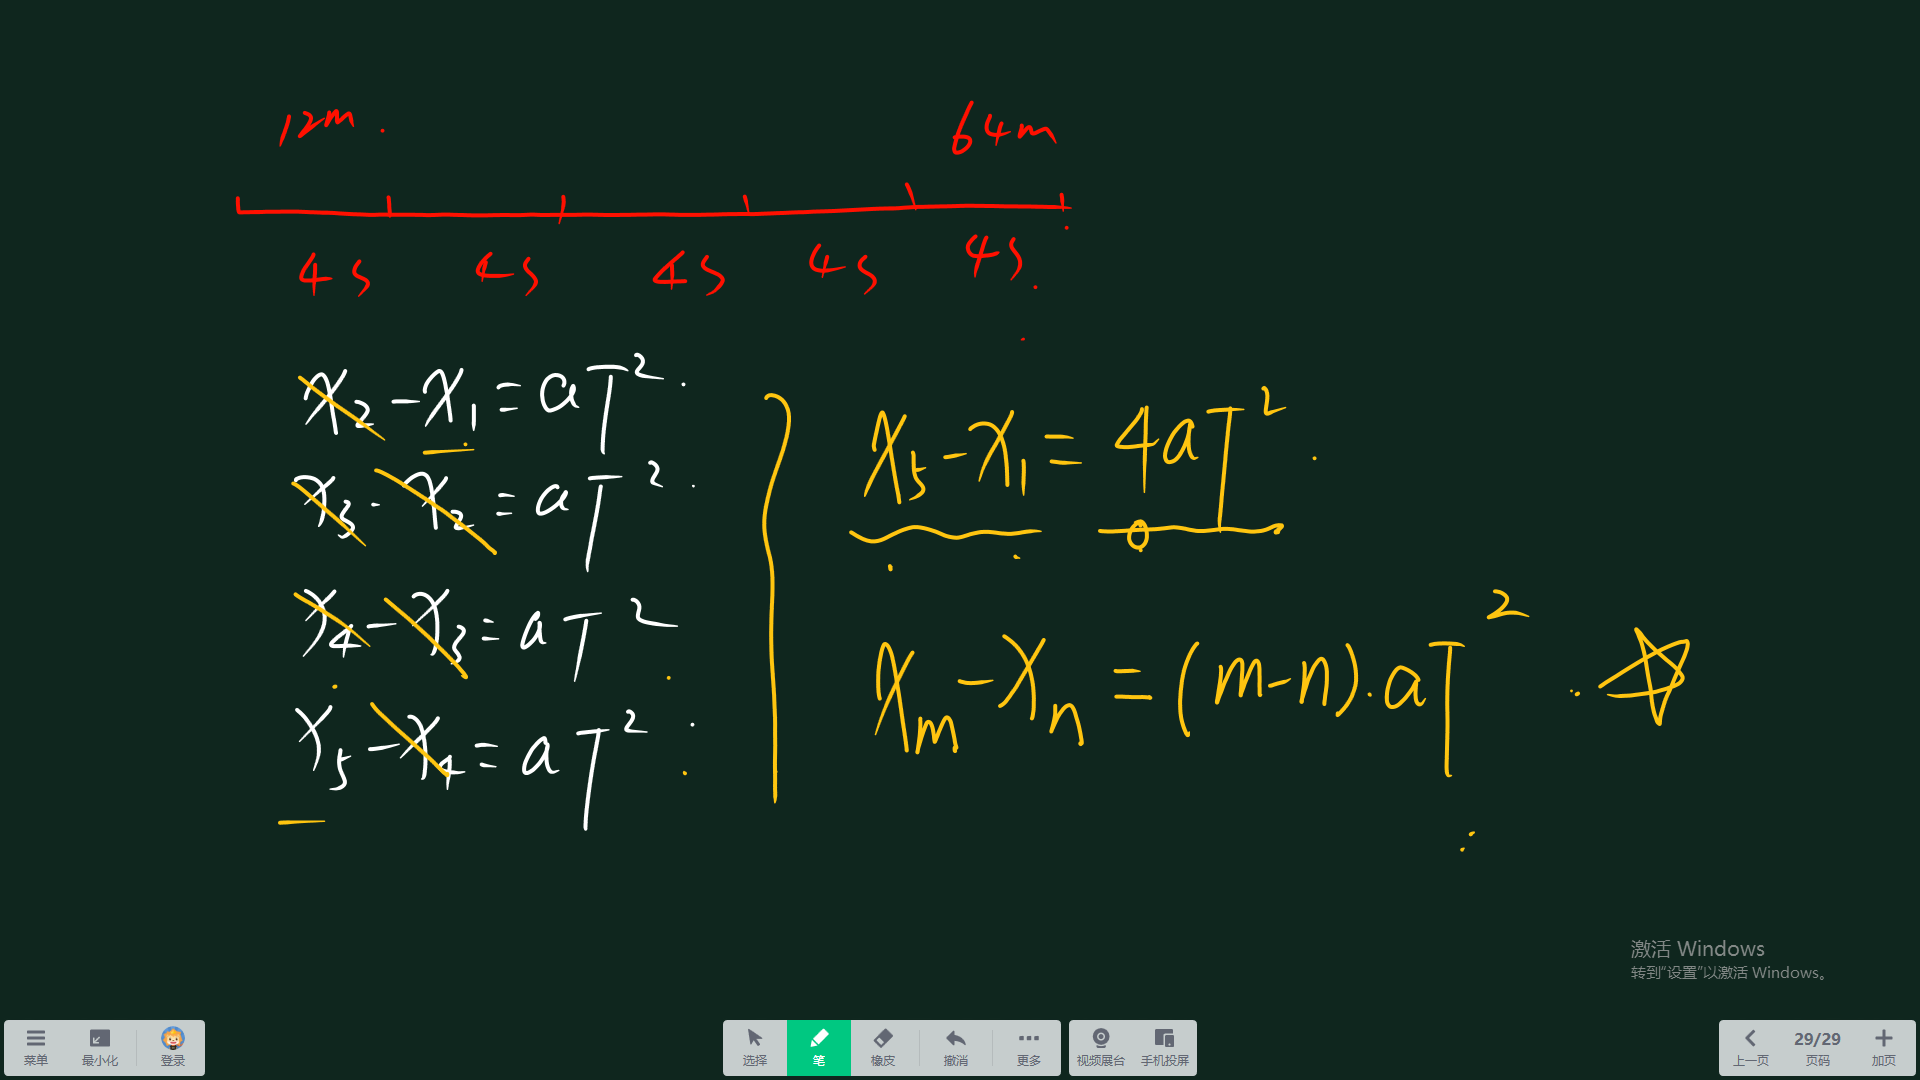 12m.
64m
4s 4s 4s 4s 4s.
x₂-x₁=aT².
x₃-x₂=aT².
x₄-x₃=aT².
x₅-x₄=aT².
x₅-x₁=4aT².
xₘ-xₙ=(m-n).aT²
激活 Windows
转到“设置”以激活 Windows。
菜单 最小化 登录 选择 笔 橡皮 撤消 更多 视频展台 手机投屏 上一页 29/29 页码 加页